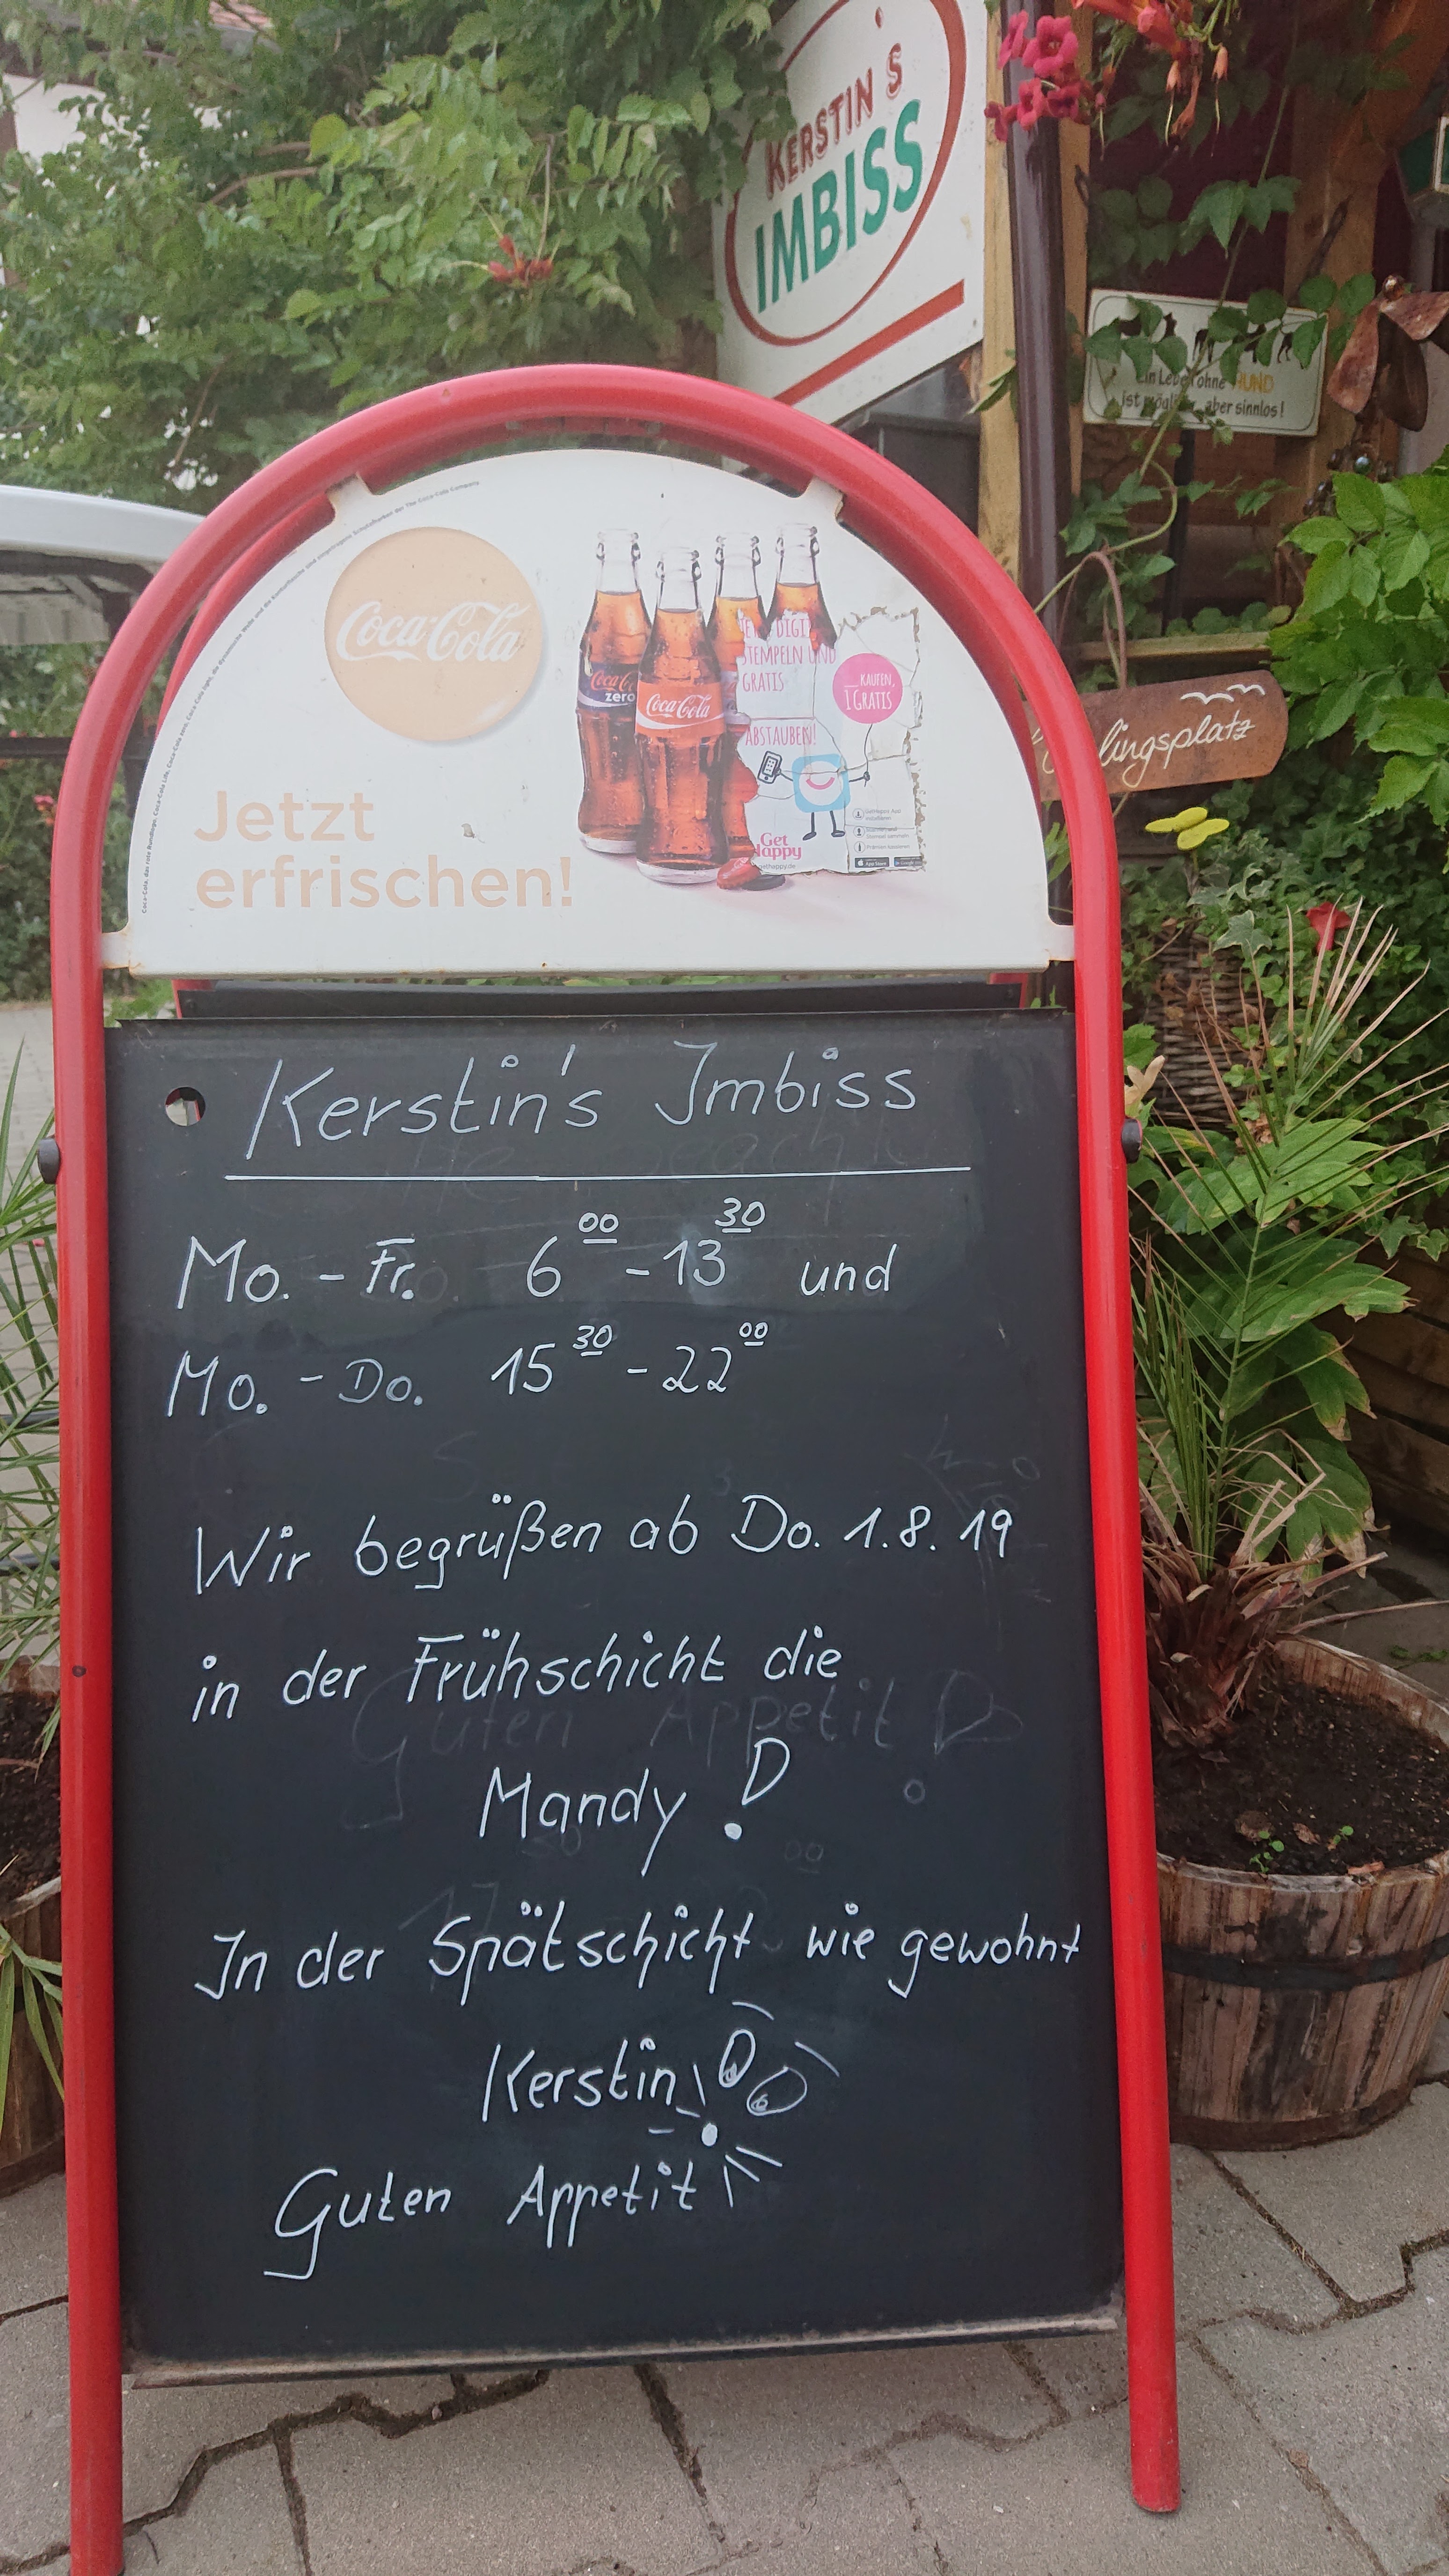 KERSTIN'S
IMBISS
Ein Leben ohne HUND
ist möglich, aber sinnlos!
Coca-Cola
Coca-Cola
zero
Coca-Cola
STEMPELN UND
GRATIS
ABSTAUBEN!
KAUFEN,
1 GRATIS
Get
Happy
App Store
Jetzt
erfrischen!
lingsplatz
Kerstin's Imbiss
Mo. - Fr. 6 00 - 13 30 und
Mo. - Do. 15 30 - 22 00
Wir begrüßen ab Do. 1.8. 19
in der Frühschicht die
Mandy !
In der Spätschicht wie gewohnt
Kerstin !
Guten Appetit